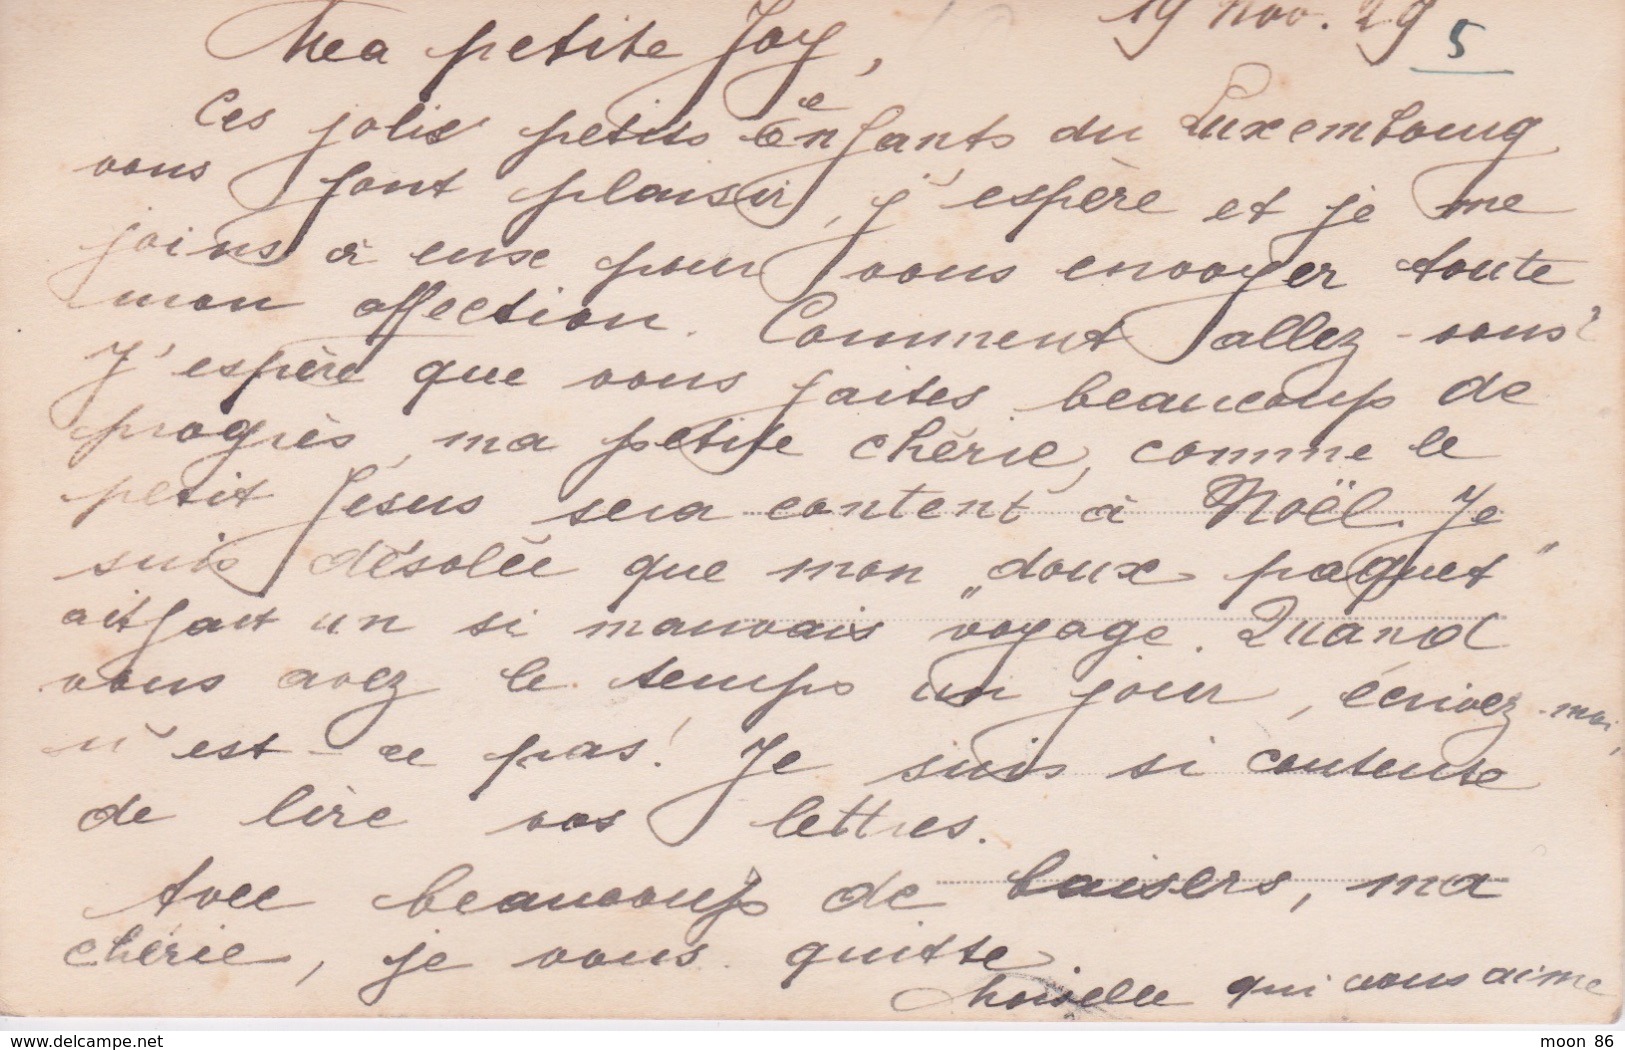 19 Nov. 29 5
Ma petite Joy,
Ces jolis petits enfants du Luxembourg
vous font plaisir, j'espère et je me
joins à eux pour vous envoyer toute
mon affection. Comment allez-vous?
J'espère que vous faites beaucoup de
progrès, ma petite chérie, comme le
petit Jésus sera content à Noël. Je
suis désolée que mon "doux paquet"
ait fait un si mauvais voyage. Quand
vous avez le temps un jour, écrivez-moi,
n'est-ce pas! Je suis si contente
de lire vos lettres.
Avec beaucoup de baisers, ma
chérie, je vous quitte
qui vous aime
delcampe.net
moon 86